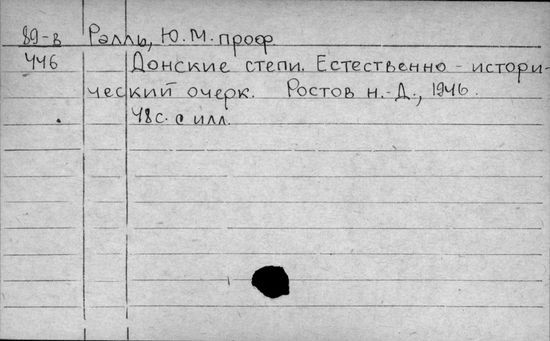 89-в Рэлль, Ю.М. проф
446 Донские степи. Естественно-истори-
ческий очерк. Ростов н.-Д., 1946.
48с. с илл.